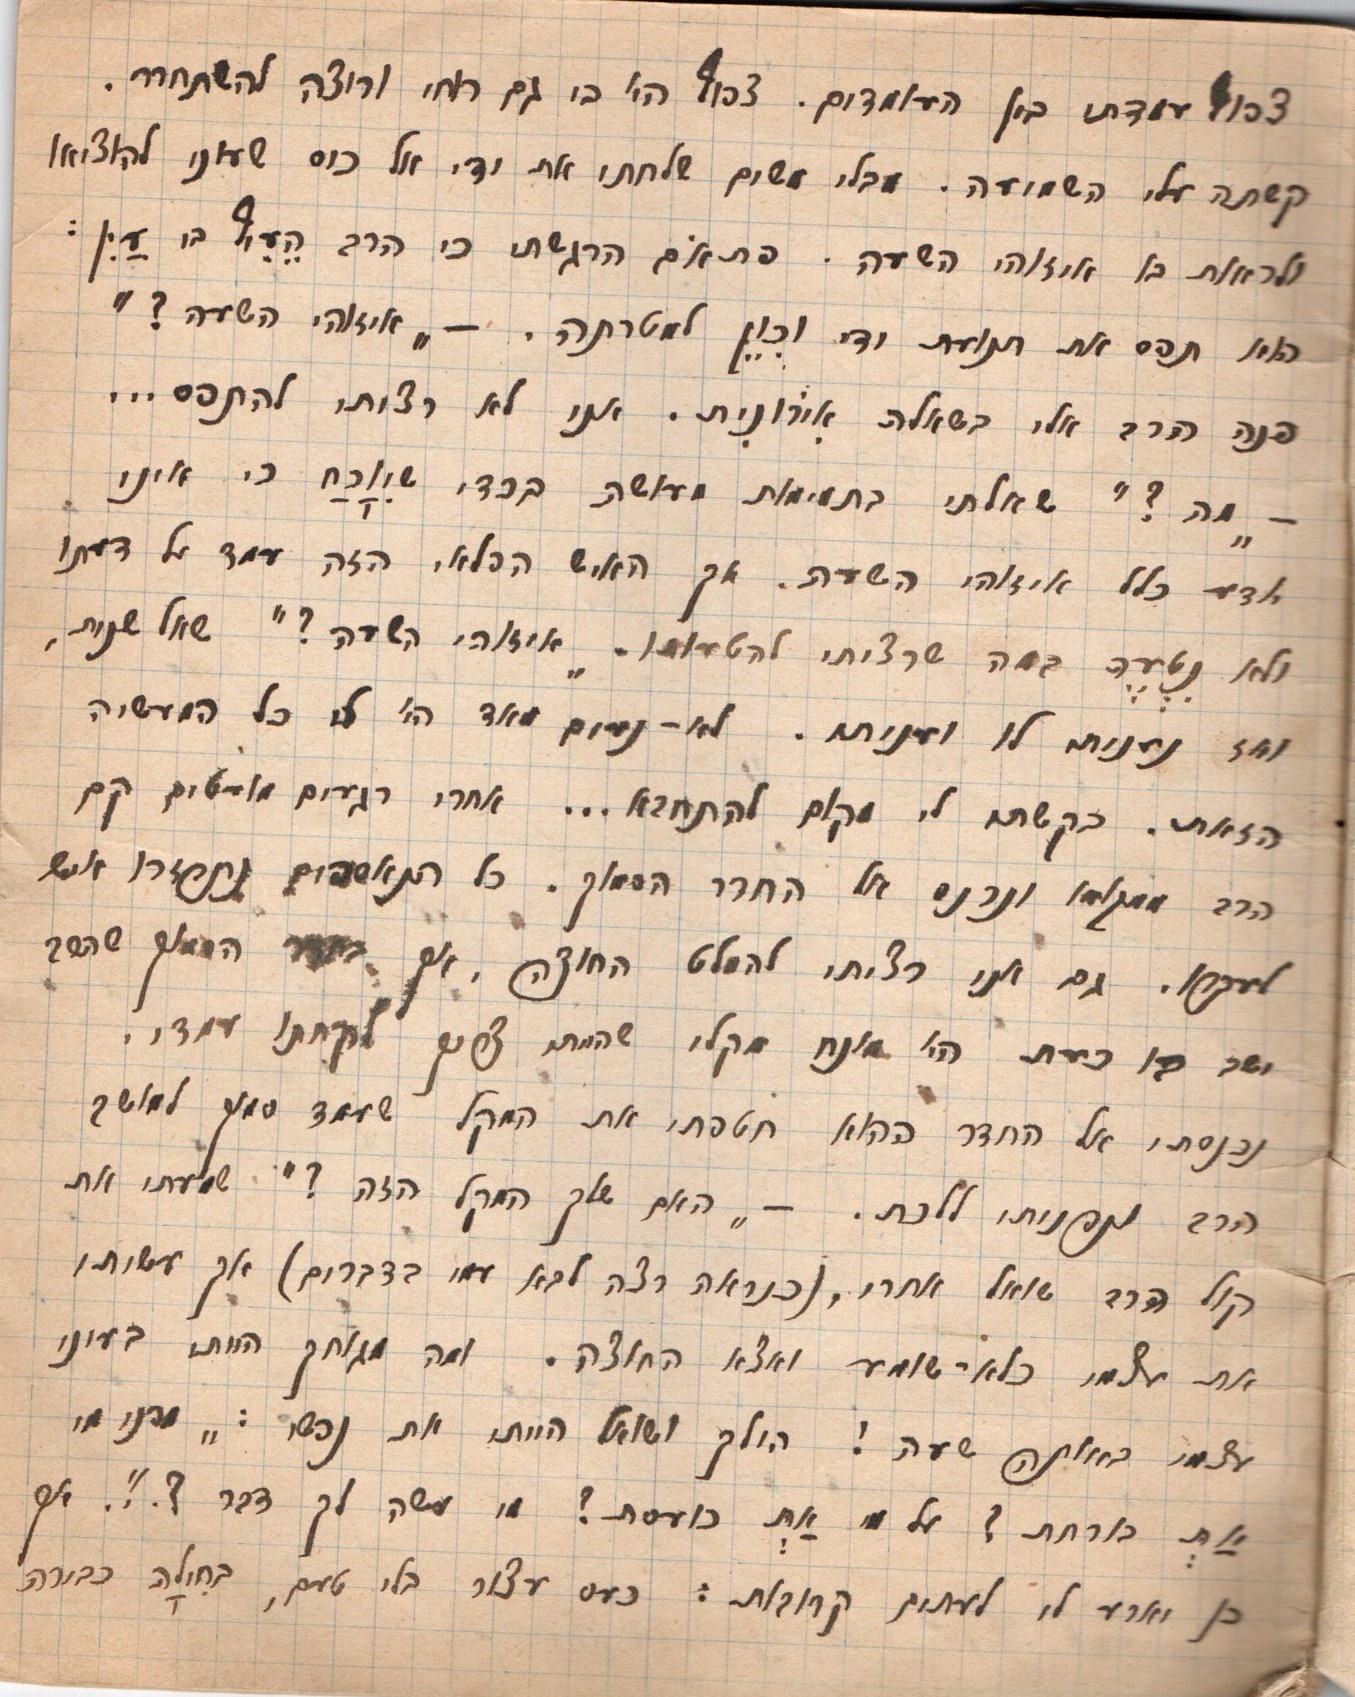 צפוף עמדתי בין העומדים. צפוף היה בי גם רוחי ורוצה להשתחרר.
קשתה עלי השמיעה. מבלי משים שלחתי את ידי אל כוס שעוני להוציאו
ולראות בו איזוהי השעה. פתאום הרגשתי כי הרב הֶעֱיף בי עַיִן:
הוא תפס את תנועת ידי וכִוֵּן למטרתה. — „איזוהי השעה?"
פנה הרב אלי בשאלה אִירוֹנִית. אני לא רציתי להתפס...
— „מה?" שאלתי בתמימות מעושה בכדי שיִוָּכַח כי אינני
יודע כלל איזוהי השעה. אך האיש הפלאי הזה עמד על דעתו
ולא נִטְעֶה במה שרציתי להטעותו. „איזוהי השעה?" שאל שנית,
ואז נעניתי לו ועניתי. לא-נעים מאד היה לי כל המעשיה
הזאת. בקשתי לי מקום להתחבא... אחרי רגעים מועטים קם
הרב ממקומו ונכנס אל החדר הסמוך. כל המתאספים נתפזרו איש
לעברו. גם אני רציתי להמלט החוצה, אך בחדר הסמוך שהרב
ישב בו כעת היה מונח מקלי שהייתי צריך לקחתו עמדי.
נכנסתי אל החדר ההוא חטפתי את המקל שעמד סמוך למושב
הרב ונפניתי ללכת. — „האם שלך המקל הזה?" שמעתי את
קול הרב שואל אחרי, (כנראה רצה לבא עמי בדברים) אך עשיתי
את עצמי כלא-שומע ואצא החוצה. ומה מגוחך הייתי בעיני
עצמי באותה שעה! הולך ושואל הייתי את נפשי: „מפני מי
אַתְּ בורחת? על מי אַתְּ כועסת? מי עשה לך דבר?". אך
כן יארע לי לעתים קרובות: כעס עצור בלי טעם, בחִילָה כבירה